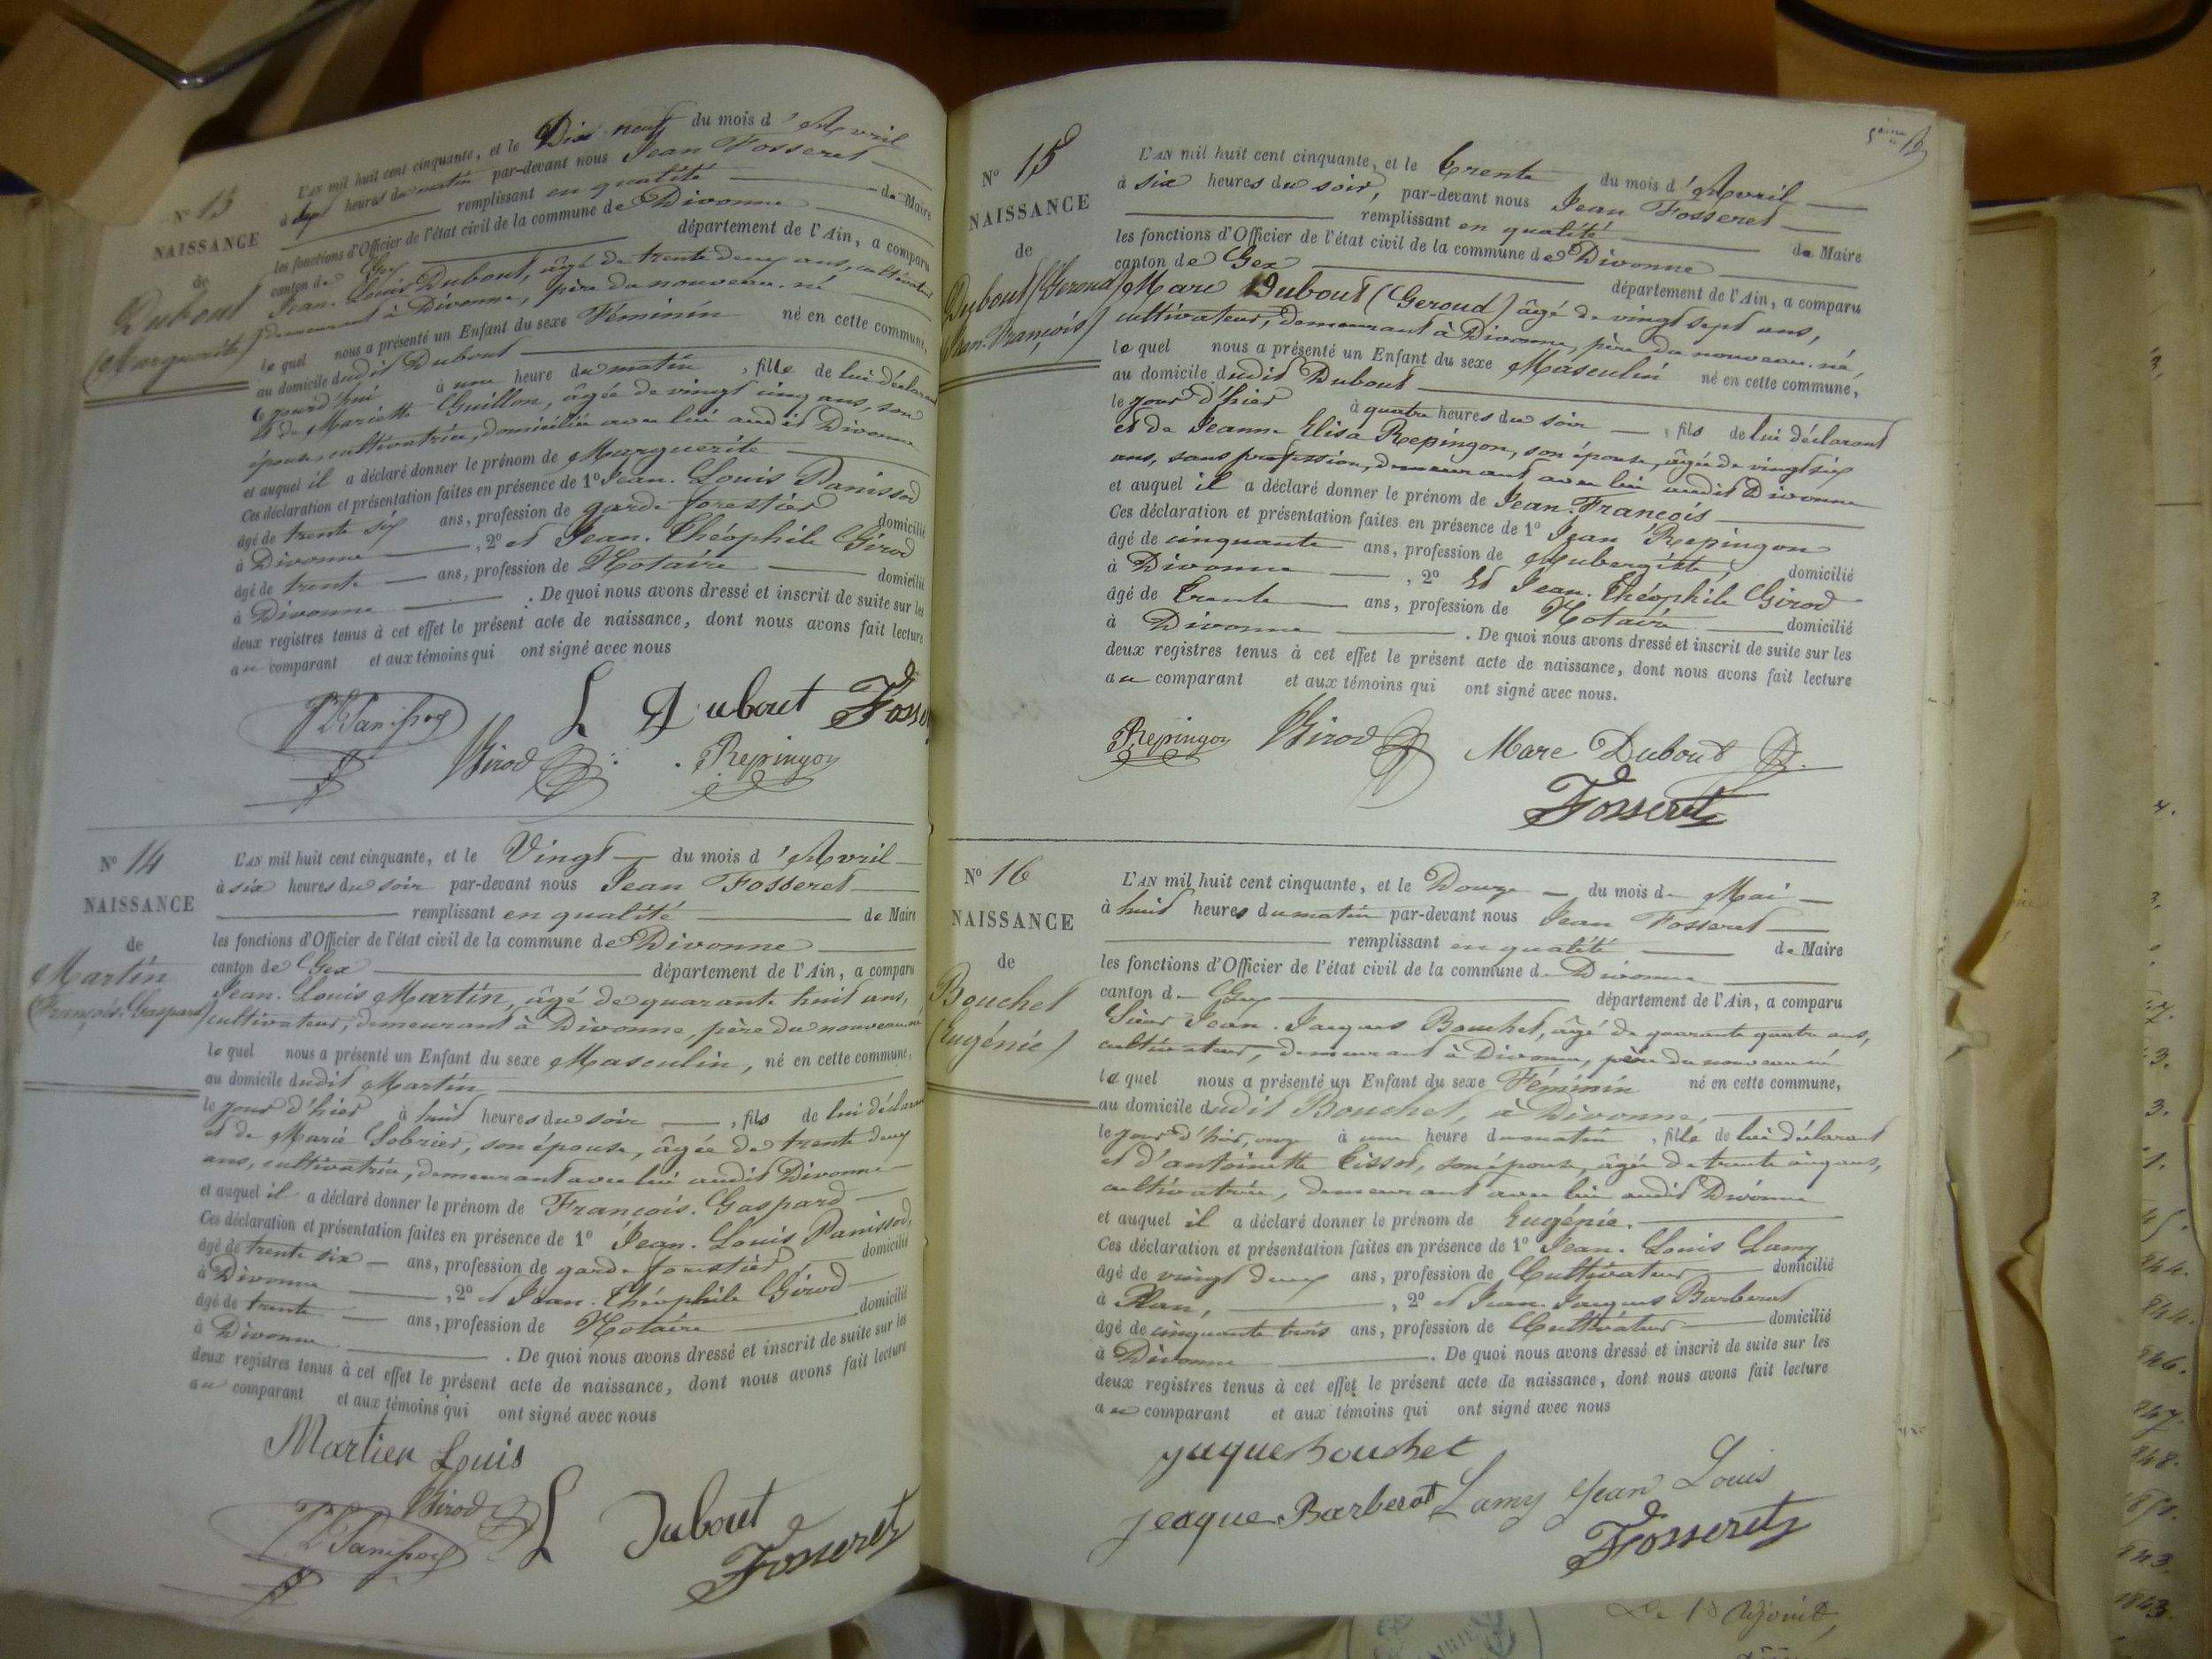 N° 13
NAISSANCE
de
Dubout
(Marguerite)
L'AN mil huit cent cinquante, et le Dix neuf du mois d'Avril
à sept heures du matin par-devant nous Jean Fosseret
remplissant en qualité de Maire
les fonctions d'Officier de l'état civil de la commune de Divonne
canton de Gex département de l'Ain, a comparu
Jean-Louis Dubout, âgé de trente deux ans, cultivateur
demeurant à Divonne, père du nouveau-né
lequel nous a présenté un Enfant du sexe Féminin né en cette commune,
au domicile dudit Dubout
cejourd'hui à une heure du matin, fille de lui déclarant
et de Mariette Guillon, âgée de vingt cinq ans, son
épouse, cultivatrice, domiciliée avec lui audit Divonne
et auquel il a déclaré donner le prénom de Marguerite
Ces déclaration et présentation faites en présence de 1° Jean-Louis Panissod
âgé de trente six ans, profession de garde forestier domicilié
à Divonne, 2° et Jean-Théophile Girod
âgé de trente ans, profession de Notaire domicilié
à Divonne. De quoi nous avons dressé et inscrit de suite sur les
deux registres tenus à cet effet le présent acte de naissance, dont nous avons fait lecture
au comparant et aux témoins qui ont signé avec nous
L Dubout Fosseret
Girod Repingon
N° 14
NAISSANCE
de
Martin
(François-Gaspard)
L'AN mil huit cent cinquante, et le Vingt du mois d'Avril
à six heures du soir par-devant nous Jean Fosseret
remplissant en qualité de Maire
les fonctions d'Officier de l'état civil de la commune de Divonne
canton de Gex département de l'Ain, a comparu
Jean-Louis Martin, âgé de quarante huit ans,
cultivateur, demeurant à Divonne, père du nouveau-né
lequel nous a présenté un Enfant du sexe Masculin, né en cette commune,
au domicile dudit Martin
le jour d'hier à huit heures du soir, fils de lui déclarant
et de Marie Sobrier, son épouse, âgée de trente deux
ans, cultivatrice, demeurant avec lui audit Divonne
et auquel il a déclaré donner le prénom de François-Gaspard
Ces déclaration et présentation faites en présence de 1° Jean-Louis Panissod,
âgé de trente six ans, profession de garde forestier domicilié
à Divonne, 2° et Jean-Théophile Girod
âgé de trente ans, profession de Notaire domicilié
à Divonne. De quoi nous avons dressé et inscrit de suite sur les
deux registres tenus à cet effet le présent acte de naissance, dont nous avons fait lecture
au comparant et aux témoins qui ont signé avec nous
Martien Louis
Girod
L Dubout
Fosseret
N° 15
NAISSANCE
de
Dubout (Geroud)
(Jean-François)
L'AN mil huit cent cinquante, et le trente du mois d'Avril
à six heures du soir, par-devant nous Jean Fosseret
remplissant en qualité de Maire
les fonctions d'Officier de l'état civil de la commune de Divonne
canton de Gex département de l'Ain, a comparu
Marc Dubout (Geroud) âgé de vingt sept ans,
cultivateur, demeurant à Divonne, père du nouveau-né,
lequel nous a présenté un Enfant du sexe Masculin né en cette commune,
au domicile dudit Dubout
le jour d'hier à quatre heures du soir, fils de lui déclarant
et de Jeanne Elisa Repingon, son épouse, âgée de vingt six
ans, sans profession, demeurant avec lui audit Divonne
et auquel il a déclaré donner le prénom de Jean-François
Ces déclaration et présentation faites en présence de 1° Jean Repingon
âgé de cinquante ans, profession de Aubergiste, domicilié
à Divonne, 2° Et Jean-Théophile Girod
âgé de trente ans, profession de Notaire domicilié
à Divonne. De quoi nous avons dressé et inscrit de suite sur les
deux registres tenus à cet effet le présent acte de naissance, dont nous avons fait lecture
au comparant et aux témoins qui ont signé avec nous.
Repingon Girod Marc Dubout
Fosseret
N° 16
NAISSANCE
de
Bouchet
(Eugénie)
L'AN mil huit cent cinquante, et le Douze du mois de Mai
à huit heures du matin par-devant nous Jean Fosseret
remplissant en qualité de Maire
les fonctions d'Officier de l'état civil de la commune de Divonne
canton de Gex département de l'Ain, a comparu
Sieur Jean-Jacques Bouchet, âgé de quarante quatre ans,
cultivateur, demeurant à Divonne, père du nouveau né
lequel nous a présenté un Enfant du sexe Féminin né en cette commune,
au domicile dudit Bouchet, à Divonne,
le jour d'hier, onze à une heure du matin, fille de lui déclarant
et d'antoinette Tissot, son épouse, âgée de trente cinq ans,
cultivatrice, demeurant avec lui audit Divonne
et auquel il a déclaré donner le prénom de Eugénie.
Ces déclaration et présentation faites en présence de 1° Jean-Louis Lamy
âgé de vingt deux ans, profession de Cultivateur domicilié
à Plan, 2° et Jean-Jacques Barberat
âgé de cinquante trois ans, profession de Cultivateur domicilié
à Divonne. De quoi nous avons dressé et inscrit de suite sur les
deux registres tenus à cet effet le présent acte de naissance, dont nous avons fait lecture
au comparant et aux témoins qui ont signé avec nous
jaque bouchet
jeaque Barberat Lamy jean Louis
Fosseret